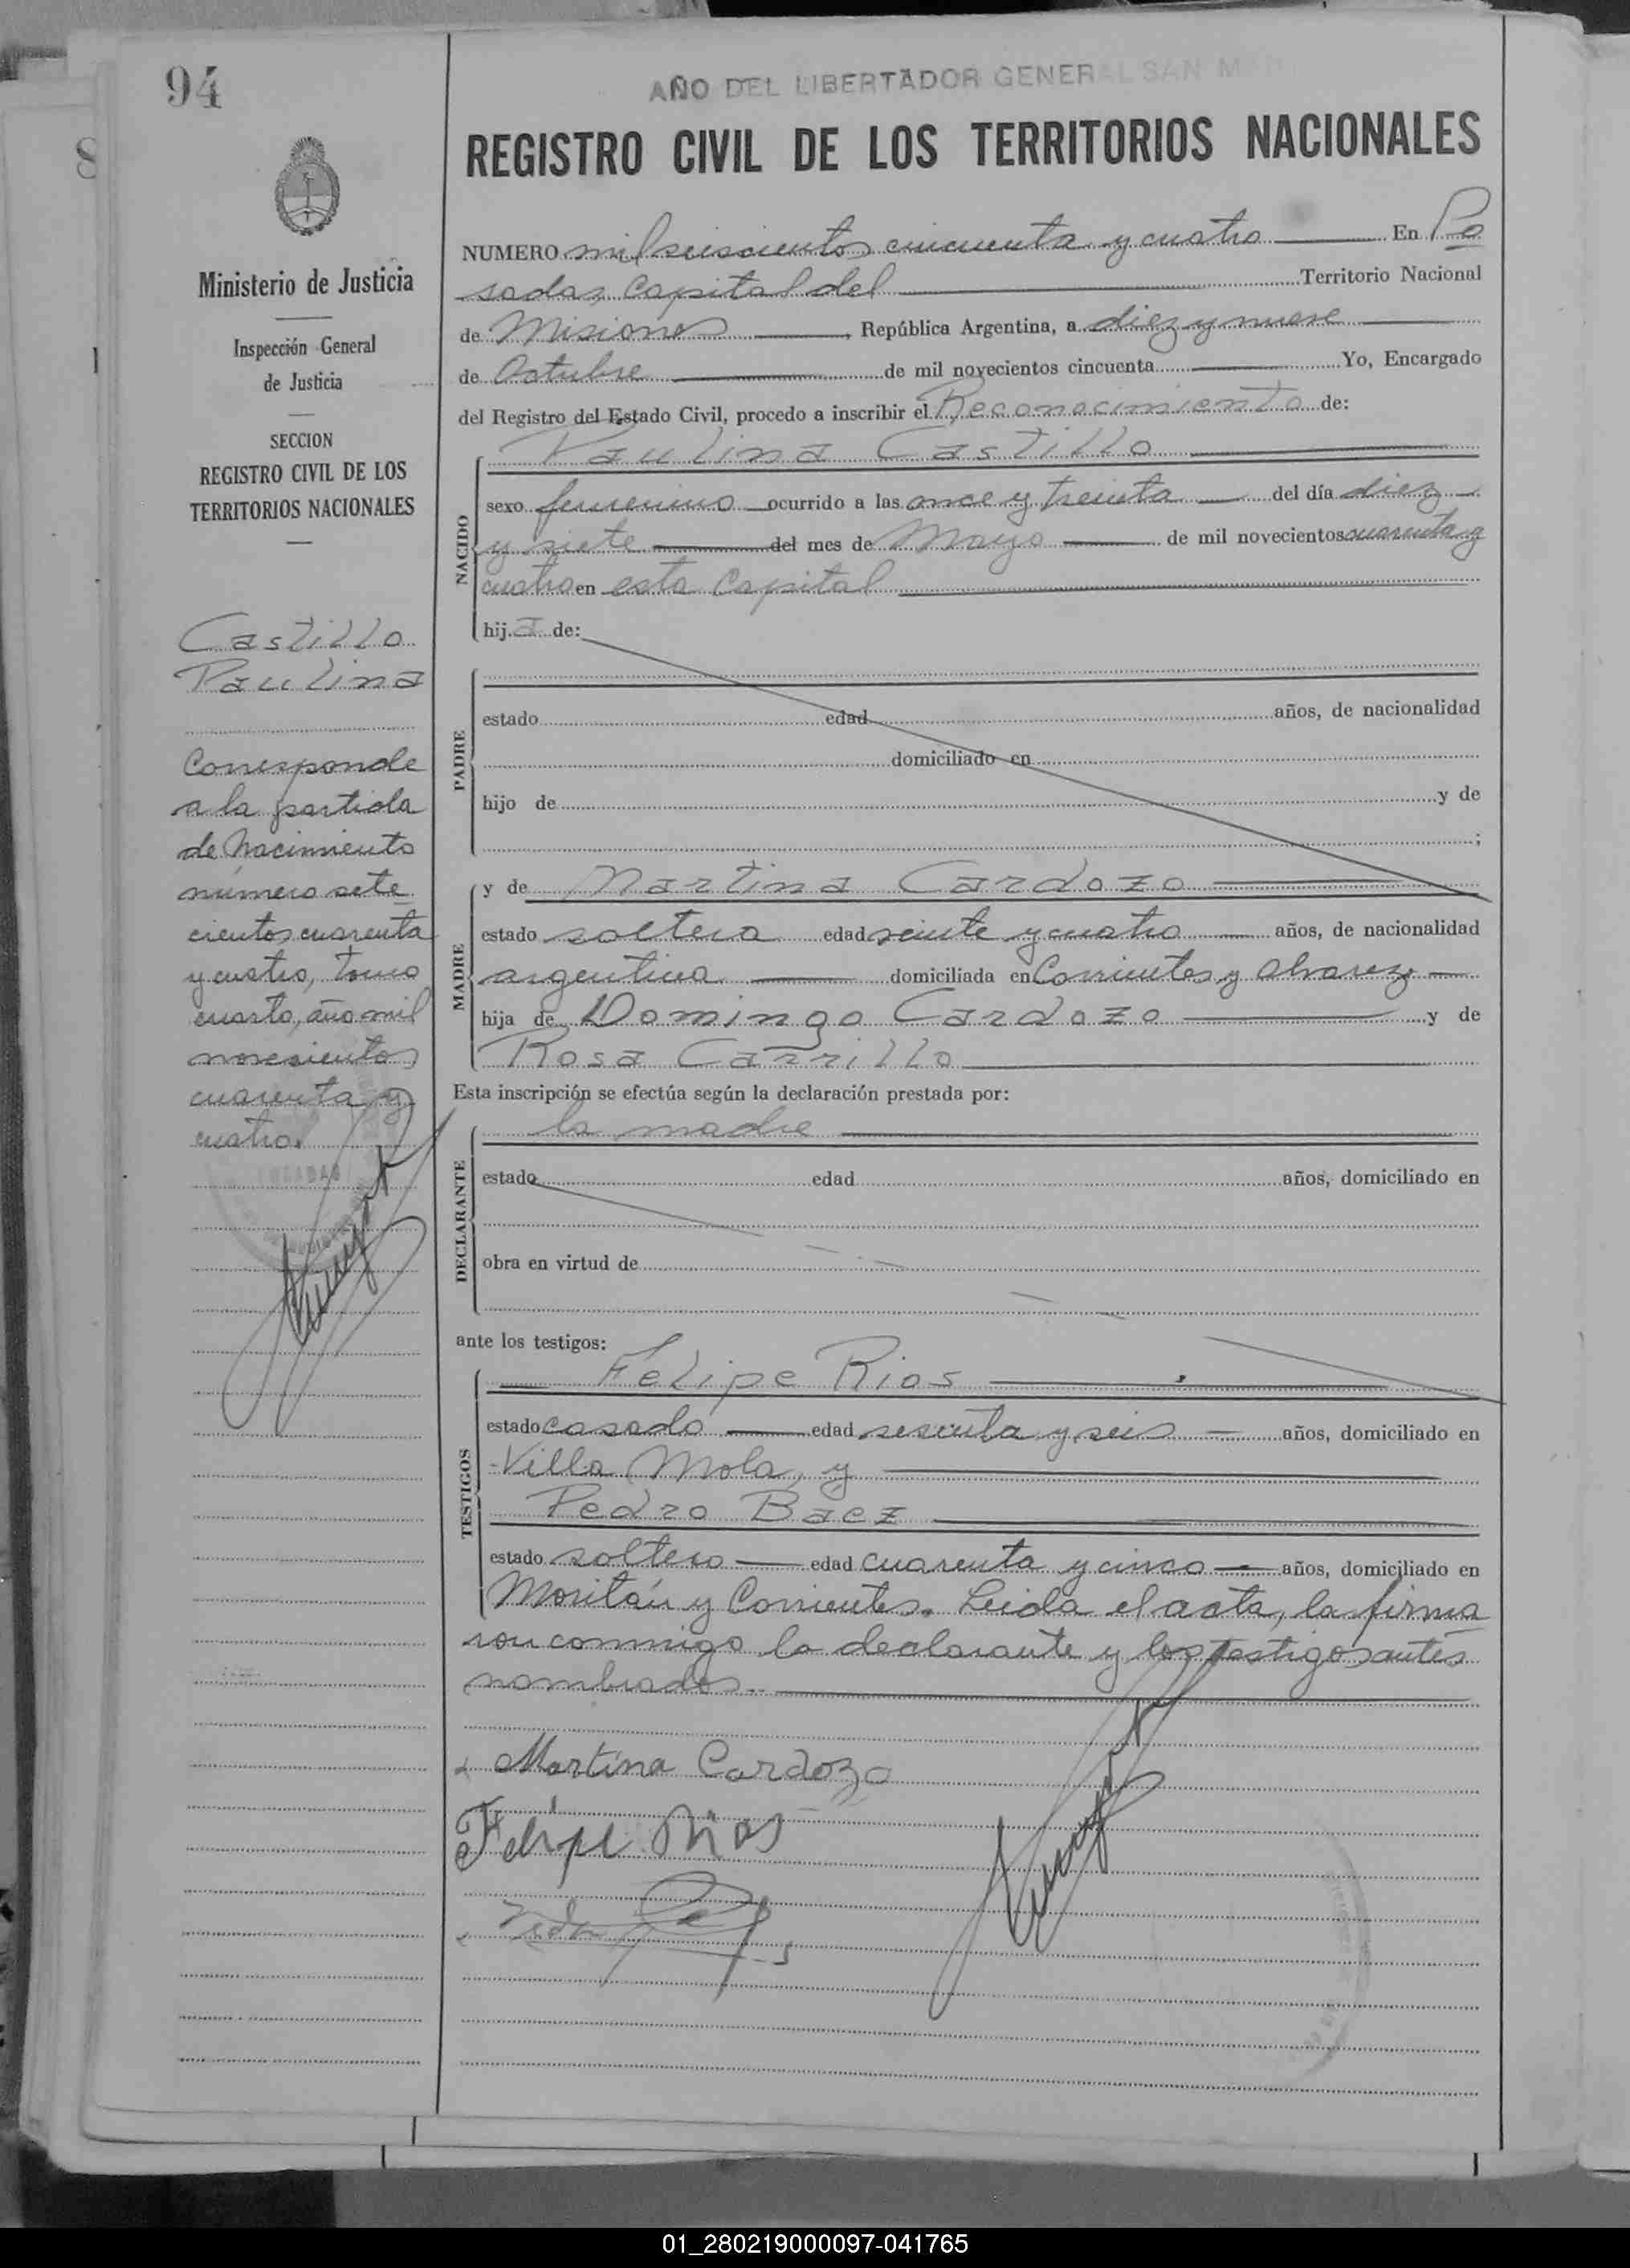 94
AÑO DEL LIBERTADOR GENERAL SAN MAR
REGISTRO CIVIL DE LOS TERRITORIOS NACIONALES
Ministerio de Justicia
Inspección General
de Justicia
SECCION
REGISTRO CIVIL DE LOS
TERRITORIOS NACIONALES
Castillo
Paulina
Corresponde
a la partida
de Nacimiento
número sete
cientos cuarenta
y cuatro, tomo
cuarto, año mil
novecientos
cuarenta y
cuatro.
POSADAS
NUMERO mil seiscientos cincuenta y cuatro En Po
sadas, Capital del Territorio Nacional
de Misiones, República Argentina, a diez y nueve
de Octubre de mil novecientos cincuenta Yo, Encargado
del Registro del Estado Civil, procedo a inscribir el Reconocimiento de:
Paulina Castillo
NACIDO
sexo femenino ocurrido a las once y treinta del día diez
y siete del mes de Mayo de mil novecientos cuarenta y
cuatro en esta Capital
hija de:
PADRE
estado edad años, de nacionalidad
domiciliado en
hijo de y de
;
MADRE
y de Martina Cardozo
estado soltera edad veinte y cuatro años, de nacionalidad
argentina domiciliada en Corrientes y Alvarez
hija de Domingo Cardozo y de
Rosa Carrillo
Esta inscripción se efectúa según la declaración prestada por:
DECLARANTE
la madre
estado edad años, domiciliado en
obra en virtud de
ante los testigos:
TESTIGOS
Felipe Rios
estado casado edad sesenta y seis años, domiciliado en
Villa Mola, y
Pedro Báez
estado soltero edad cuarenta y cinco años, domiciliado en
Moritán y Corrientes. Leida el acta, la firma
ron conmigo la declarante y los testigos antes
nombrados.
Martina Cardozo
Felipe Rios
01_280219000097-041765